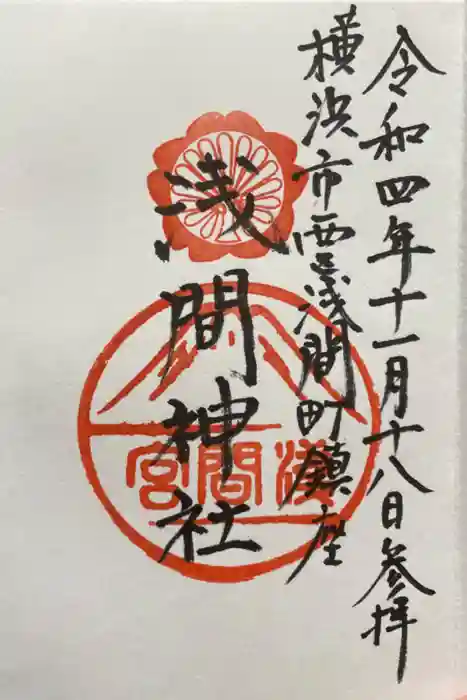 令和四年十一月十八日参拝
横浜市西区浅間町鎮座
浅間神社
浅間宮